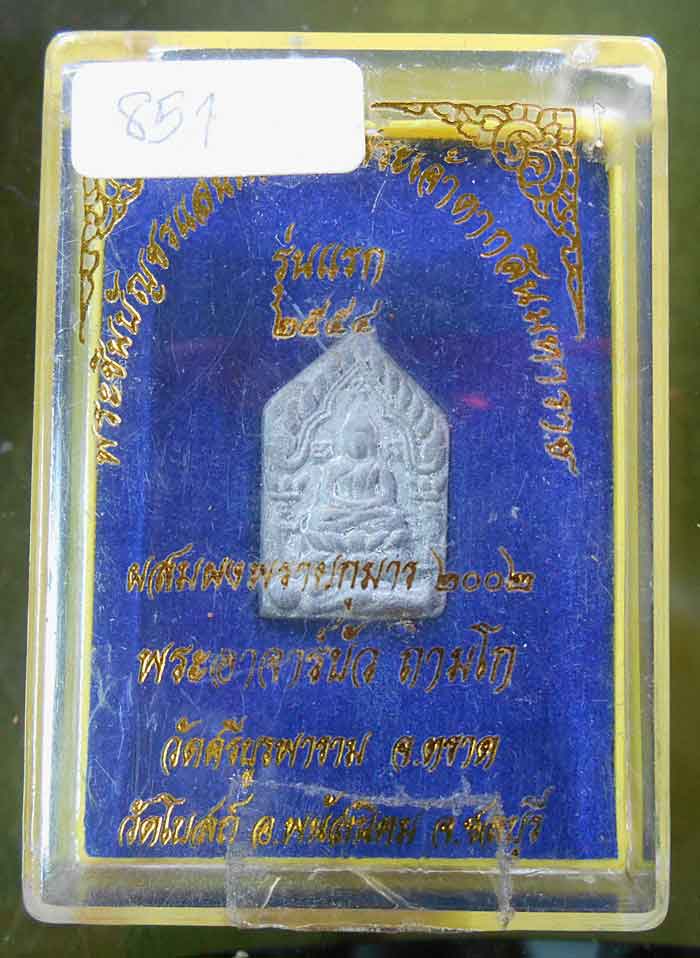 851
พระชินบัญชรแสน พระเจ้าตากสินมหาราช
รุ่นแรก
๒๕๕๔
ผสมผงพรายกุมาร ๒๐๐๒
พระอาจารย์บัว ถามโก
วัดศรีบูรพาราม จ.ตราด
วัดโบสถ์ อ.พนัสนิคม จ.ชลบุรี